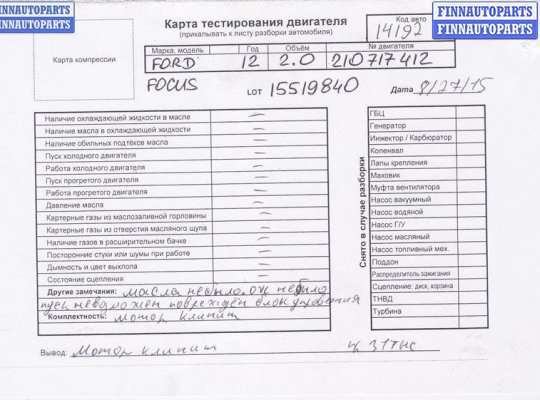 FINNAUTOPARTS
FINNAUTOPARTS
FINNAUTOPARTS
FINNAUTOPARTS
Карта тестирования двигателя
(прикалывать к листу разборки автомобиля)
Код авто
14192
Карта компрессии
Марка, модель Год Объём № двигателя
FORD 12 2.0 210717412
FOCUS LOT 15519840 Дата 8/27/15
Наличие охлаждающей жидкости в масле —
Наличие масла в охлаждающей жидкости —
Наличие обильных подтёков масла —
Пуск холодного двигателя —
Работа холодного двигателя —
Пуск прогретого двигателя —
Работа прогретого двигателя —
Давление масла —
Картерные газы из маслозаливной горловины —
Картерные газы из отверстия масляного щупа —
Наличие газов в расширительном бачке —
Посторонние стуки или шумы при работе —
Дымность и цвет выхлопа —
Состояние сцепления —
Другие замечания: масла не было ож не было
пуск невозможен повреждён блок управления
Комплектность: мотор клинит
Снято в случае разборки
ГБЦ
Генератор
Инжектор / Карбюратор
Коленвал
Лапы крепления
Маховик
Муфта вентилятора
Насос вакуумный
Насос водяной
Насос Г/У
Насос масляный
Насос топливный мех.
Поддон
Распределитель зажигания
Сцепление: диск, корзина
ТНВД
Турбина
Вывод: Мотор клинит
31 тыс